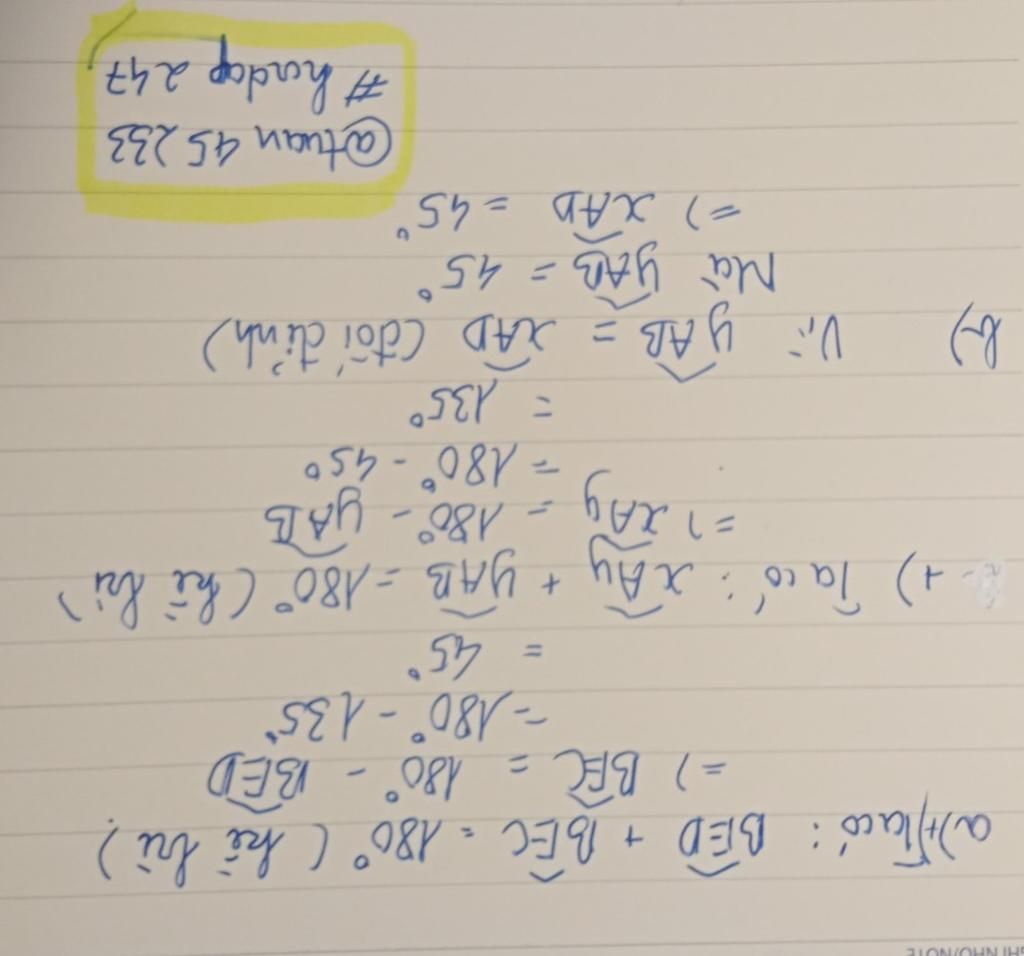 a)+) Ta có: BED + BEC = 180° (kề bù)
=) BEC = 180° - BED
= 180° - 135°
= 45°
+) Ta có: xAy + yAB = 180° (kề bù)
=) xAy = 180° - yAB
= 180° - 45°
= 135°
b) Vì yAB = xAD (đối đỉnh)
Mà yAB = 45°
=) xAD = 45°
@tuan 45233
# hoidap 247